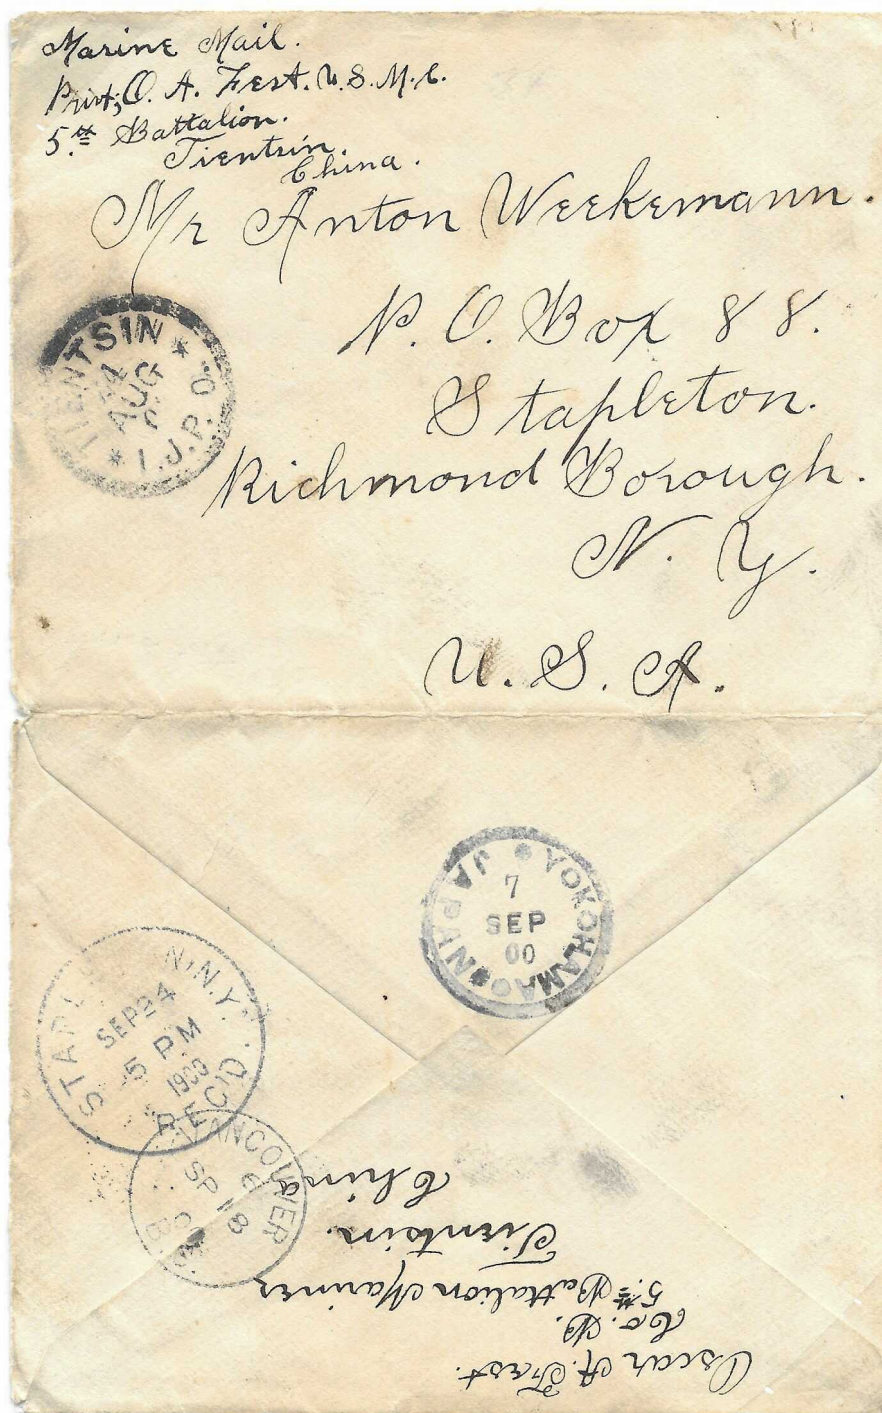 Marine Mail.
Privt; O. A. Fest. U.S.M.C.
5th Battalion.
Tientsin.
China.
Mr Anton Weekemann.
P. O. Box 88.
Stapleton.
Richmond Borough.
N. Y.
U. S. A.
TIENTSIN
24
AUG
I.J.P.O.
YOKOHAMA
JAPAN
7
SEP
00
STAPL N, N.Y.
SEP 24
5 PM
1900
REC'D.
VANCOUVER
6
SP 18
00
B.C.
Oscar A. Fest.
Co. B.
5th Battalion Marines
Tientsin.
China